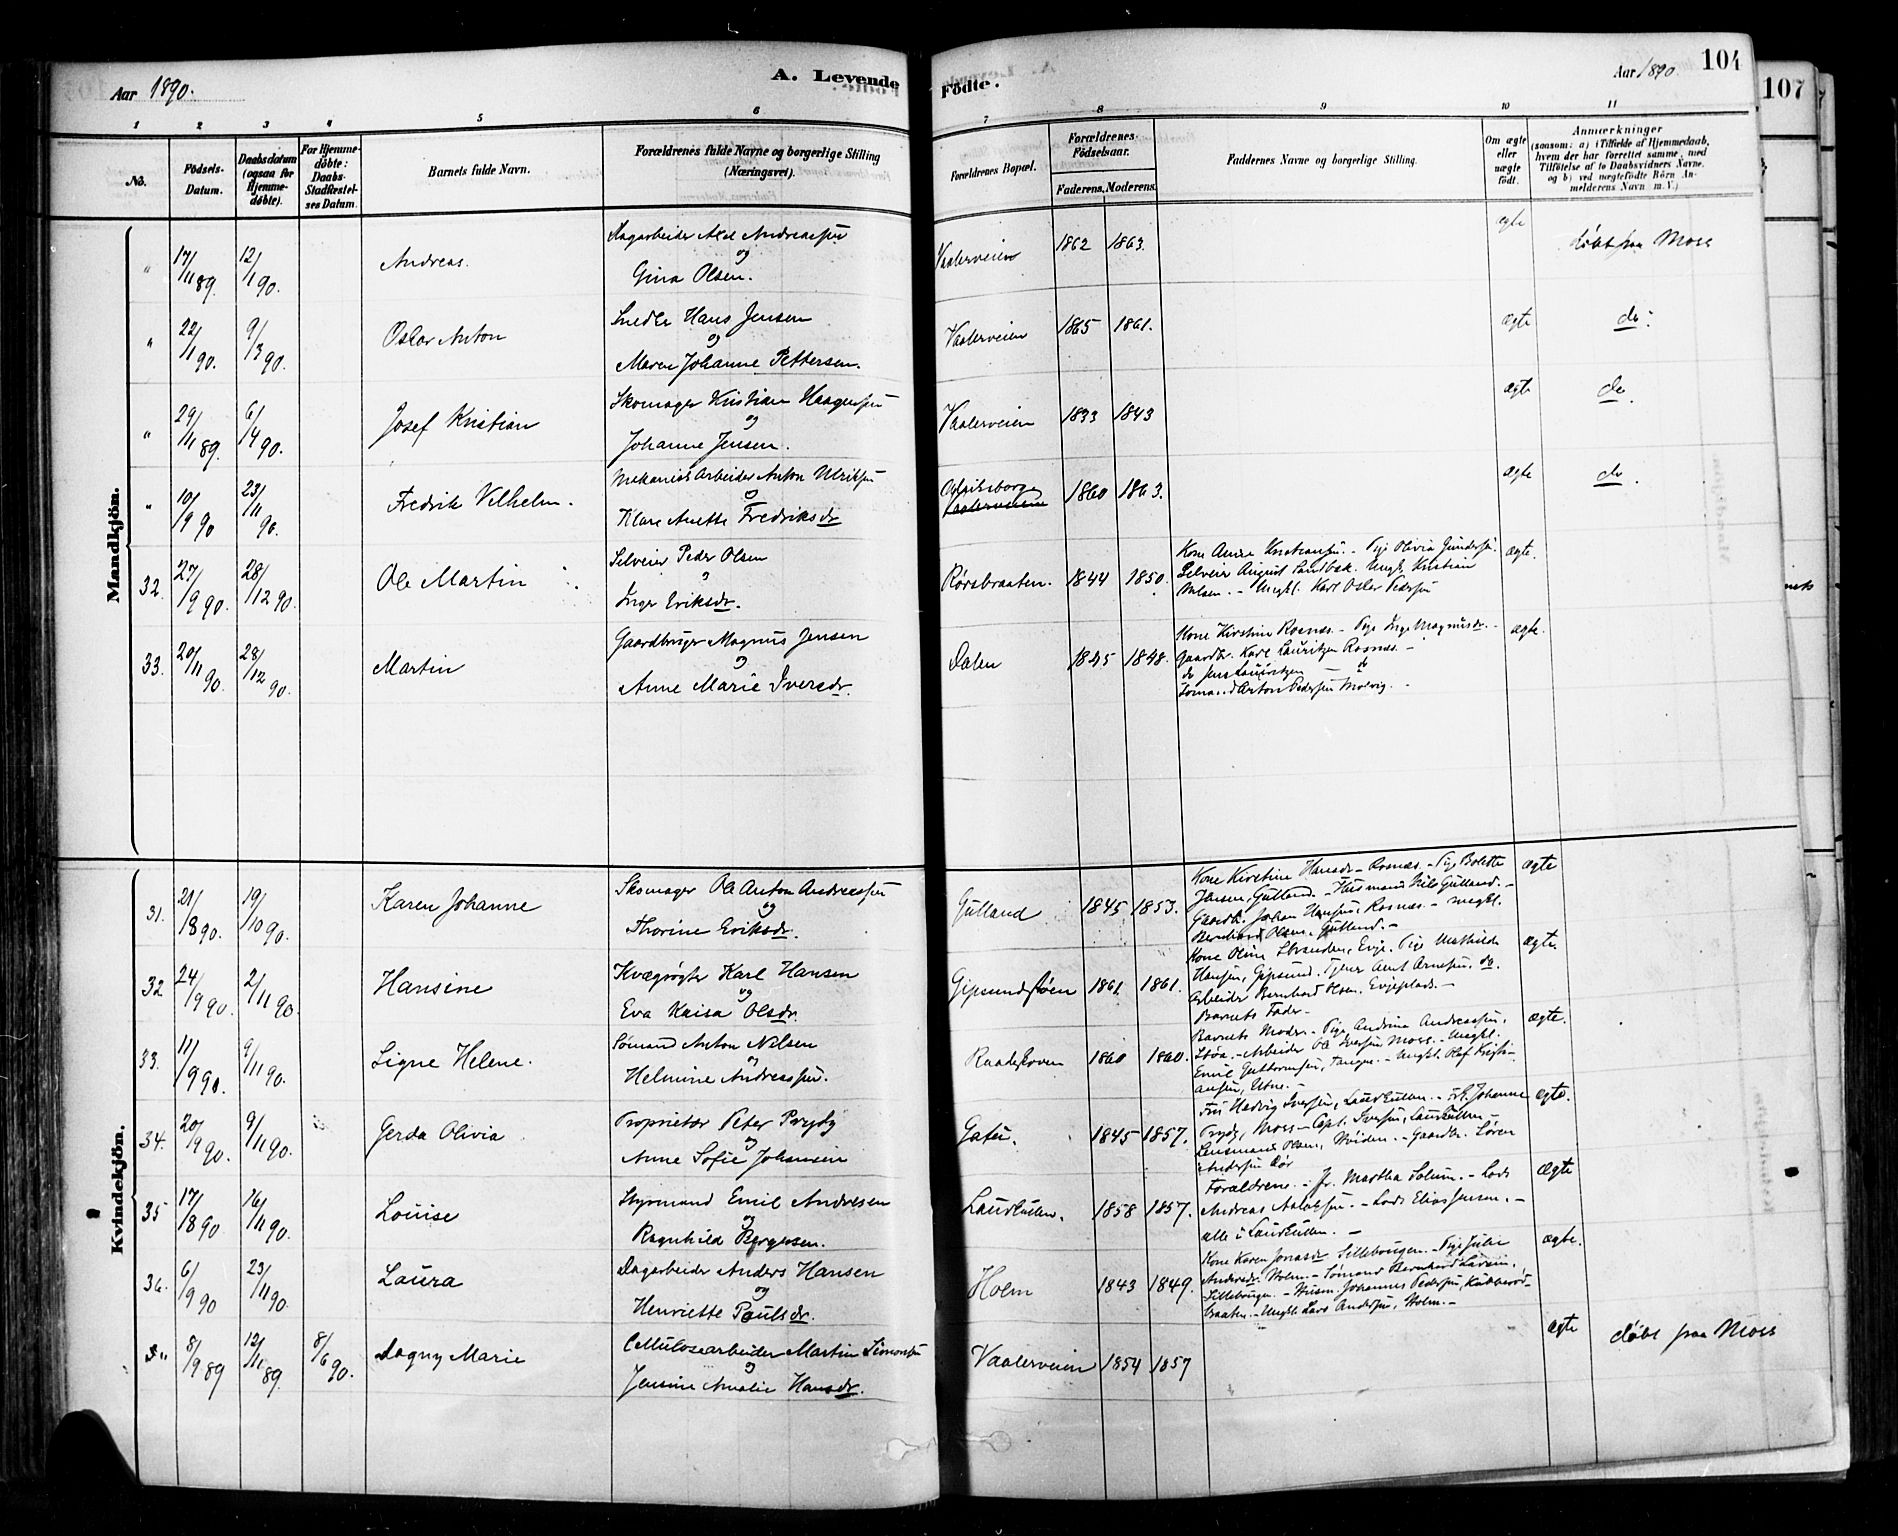 Aar 1890.
A. Levende
Fødte.
Aar 1890.
104
107
1 2 3 4 5 6 7 8 9 10 11
No.
Fødsels-Datum.
Daabsdatum (ogsaa for Hjemmedøbte).
For Hjemmedøbte: Daabs-Stadfæstelses Datum.
Barnets fulde Navn.
Forældrenes fulde Navne og borgerlige Stilling (Næringsvei).
Forældrenes Bopæl.
Forældrenes Fødselsaar.
Faderens. Moderens.
Faddernes Navne og borgerlige Stilling.
Om ægte eller uægte født.
Anmærkninger
(saasom: a) i Tilfælde af Hjemmedaab, hvem der har forrettet samme, med Tilføielse af to Daabsvidners Navne, og b) ved uægtefødte Børn Anmelderens Navn m. V.)
Mandkjøn.
" 17/11 89. 12/1 90. Andreas. Dagarbeider Axel Andreassen og Gina Olsen. Vaalerveien 1862 1863. ægte døbt fra Moss
" 22/1 90. 9/3 90. Oskar Anton Snedker Hans Jensen og Maren Johanne Pettersen. Vaalerveien 1865 1861. ægte do.
" 29/11 89. 6/4 90. Josef Kristian Skomager Kristian Haagensen og Johanne Jensen. Vaalerveien 1833 1843 ægte do.
" 10/9 90 23/11 90. Fredrik Vilhelm. Mekanisk Arbeider Anton Ulriksen og Klara Anette Fredriksdr Vaalerveien 1860 1863. ægte do.
32. 27/9 90. 28/12 90. Ole Martin Selveier Peder Olsen og Inger Eriksdr. Rørsbraaten. 1844 1850.
Kone Anne Kristiansen. - Pige Olivia Gundersen.
Selveier August Sandbæk. Ungk. Kristian
Nilsen. - Ungkl. Karl Oskar Pedersen
ægte.
33. 20/11 90. 28/12 90. Martin Gaardbruger Magnus Jensen og Anne Marie Iversdr. Dalen 1845 1848.
Kone Kirstine Rosnæs. - Pige Inga Magnusdr. -
Gaardbr. Karl Lauritzen Rosnæs. -
do Jens Lauritzen - do
Sømand Anton Pedersen Molvig. -
ægte.
Kvindekjøn.
31. 21/8 90. 19/10 90. Karen Johanne Skomager Ole Anton Andreassen og Thorine Eriksdr. Gulland 1845 1853.
Kone Kirstine Hansdr. Rosnæs. - Pige Bolette
Jansen, Gulland. - Husmand Nils Gulland. -
Gaardbr. Johan Hansen, Rosnæs. - Ungkl.
Bernhard Olsen, Gulland. -
ægte
32 24/9 90. 2/11 90. Hansine Kvægrøgter Karl Hansen og Eva Kaisa Olsdr. Gipsundstøen 1861. 1861.
Kone Oline Stranden, Evje. Pige Mathilde
Hansen, Gipsund. Tjener Aent Arnesen, do.
Arbeider Bernhard Olsen. Evjeplads. -
Barnets Fader -
ægte.
33. 11/9 90. 9/11 90. Signe Helene. Sømand Anton Nilsen og Helmine Andreassen. Raadeskoven 1860 1860.
Barnets Moder. - Pige Andrina Andreassen,
Støa. - Arbeider Ole Iversen Moss. - Ungkl.
Emil Guttormsen, Tangen. - Ungkl. Olaf Kristi-
ansen, Utne. -
ægte.
34. 20/9 90. 9/11 90. Gerda Olivia Proprietær Peter Prydz og Anne Sofie Johansen Gatu. 1845 1857.
Fru Hedvig Iversen, Laurkullen. - Frk. Johanne
Prydz, Moss - Capt. Iversen, Laurkullen -
Lensmand Olsen, Nøiden. - Gaardbr. Søren
Andersen Rør
ægte.
35 17/8 90. 16/11 90. Louise Styrmand Emil Andresen og Ragnhild Børgesen. Laurkullen. 1858 1857.
Forældrene. - Fr. Martha Solum. - Lods
Andreas Aslaksen. - Lods Elias Jensen. -
alle i Laurkullen. -
ægte
36. 6/9 90 23/11 90. Laura Dagarbeider Anders Hansen og Henriette Paulsdr. Holm 1843 1849.
Kone Karen Jonasdr Sillebougen. - Pige Julie
Andersdr. Holm. - Sømand Bernhard Larsen,
Sillebougen. - Husm. Johannes Pedersen, Kubberød-
braaten. - Ungkl. Lars Andersen, Holm. -
ægte.
" 8/9 89 12/11 89. 8/6 90. Dagny Marie Cellulosearbeider Martin Simonsen og Jensine Amalie Hansdr. Vaalerveien 1854 1857 ægte døbt fra Moss